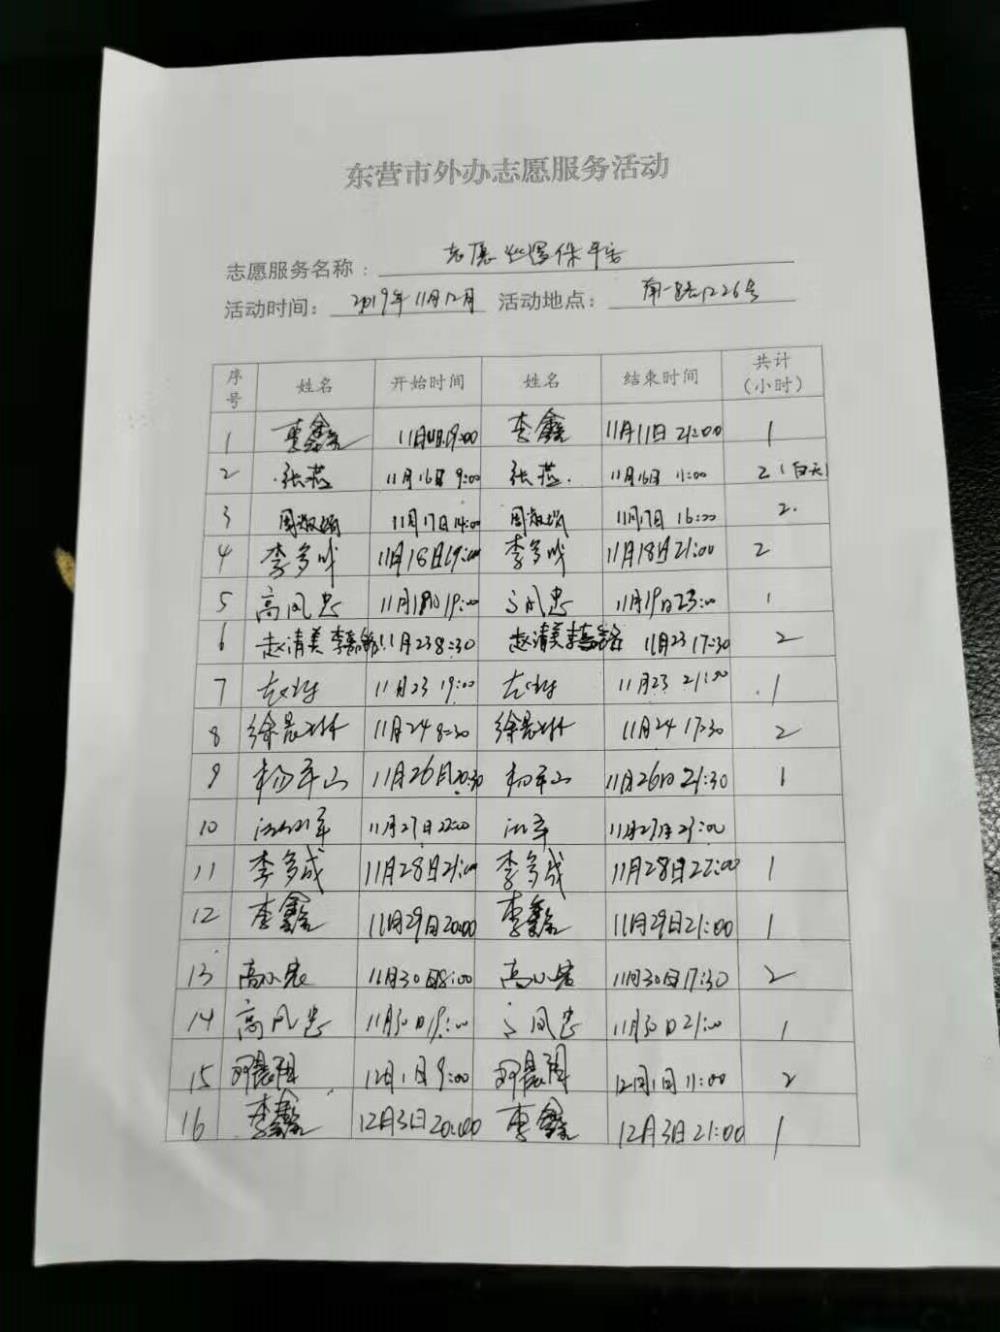 东营市外办志愿服务活动
志愿服务名称： 志愿巡逻保平安
活动时间： 2019年11月12月 活动地点： 南一路1226号
序号 姓名 开始时间 姓名 结束时间 共计（小时）
1 李鑫 19:00 李鑫 11月11日 21:00 1
2 张燕 11月16日 9:00 张燕 11月16日 11:00 2（白天）
3 11月17日14:00 11月17日 16:00 2
4 李多成 11月18日19:00 李多成 11月18日21:00 2
5 高凤忠 11月19日19:00 高凤忠 11月19日23:00 1
6 赵清美 11月23 8:30 赵清美 11月23 17:30 2
7 11月23 19:00 11月23 21:00 1
8 徐晨 11月24 8:30 徐晨 11月24 17:30 2
9 杨军山 11月26日20:30 杨军山 11月26日21:30 1
10 11月27日22:00 11月27日23:00
11 李多成 11月28日21:00 李多成 11月28日22:00 1
12 李鑫 11月29日20:00 李鑫 11月29日21:00 1
13 高小宏 11月30日8:00 高小宏 11月30日17:30 2
14 高凤忠 11月30日19:00 高凤忠 11月30日21:00 1
15 12月1日 9:00 12月1日 11:00 2
16 李鑫 12月3日20:00 李鑫 12月3日21:00 1